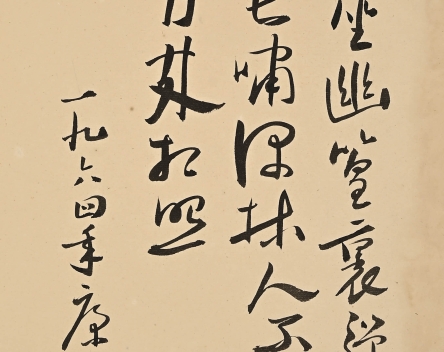 坐幽篁裏彈
長嘯深林人不
月來相照
一九六四年康